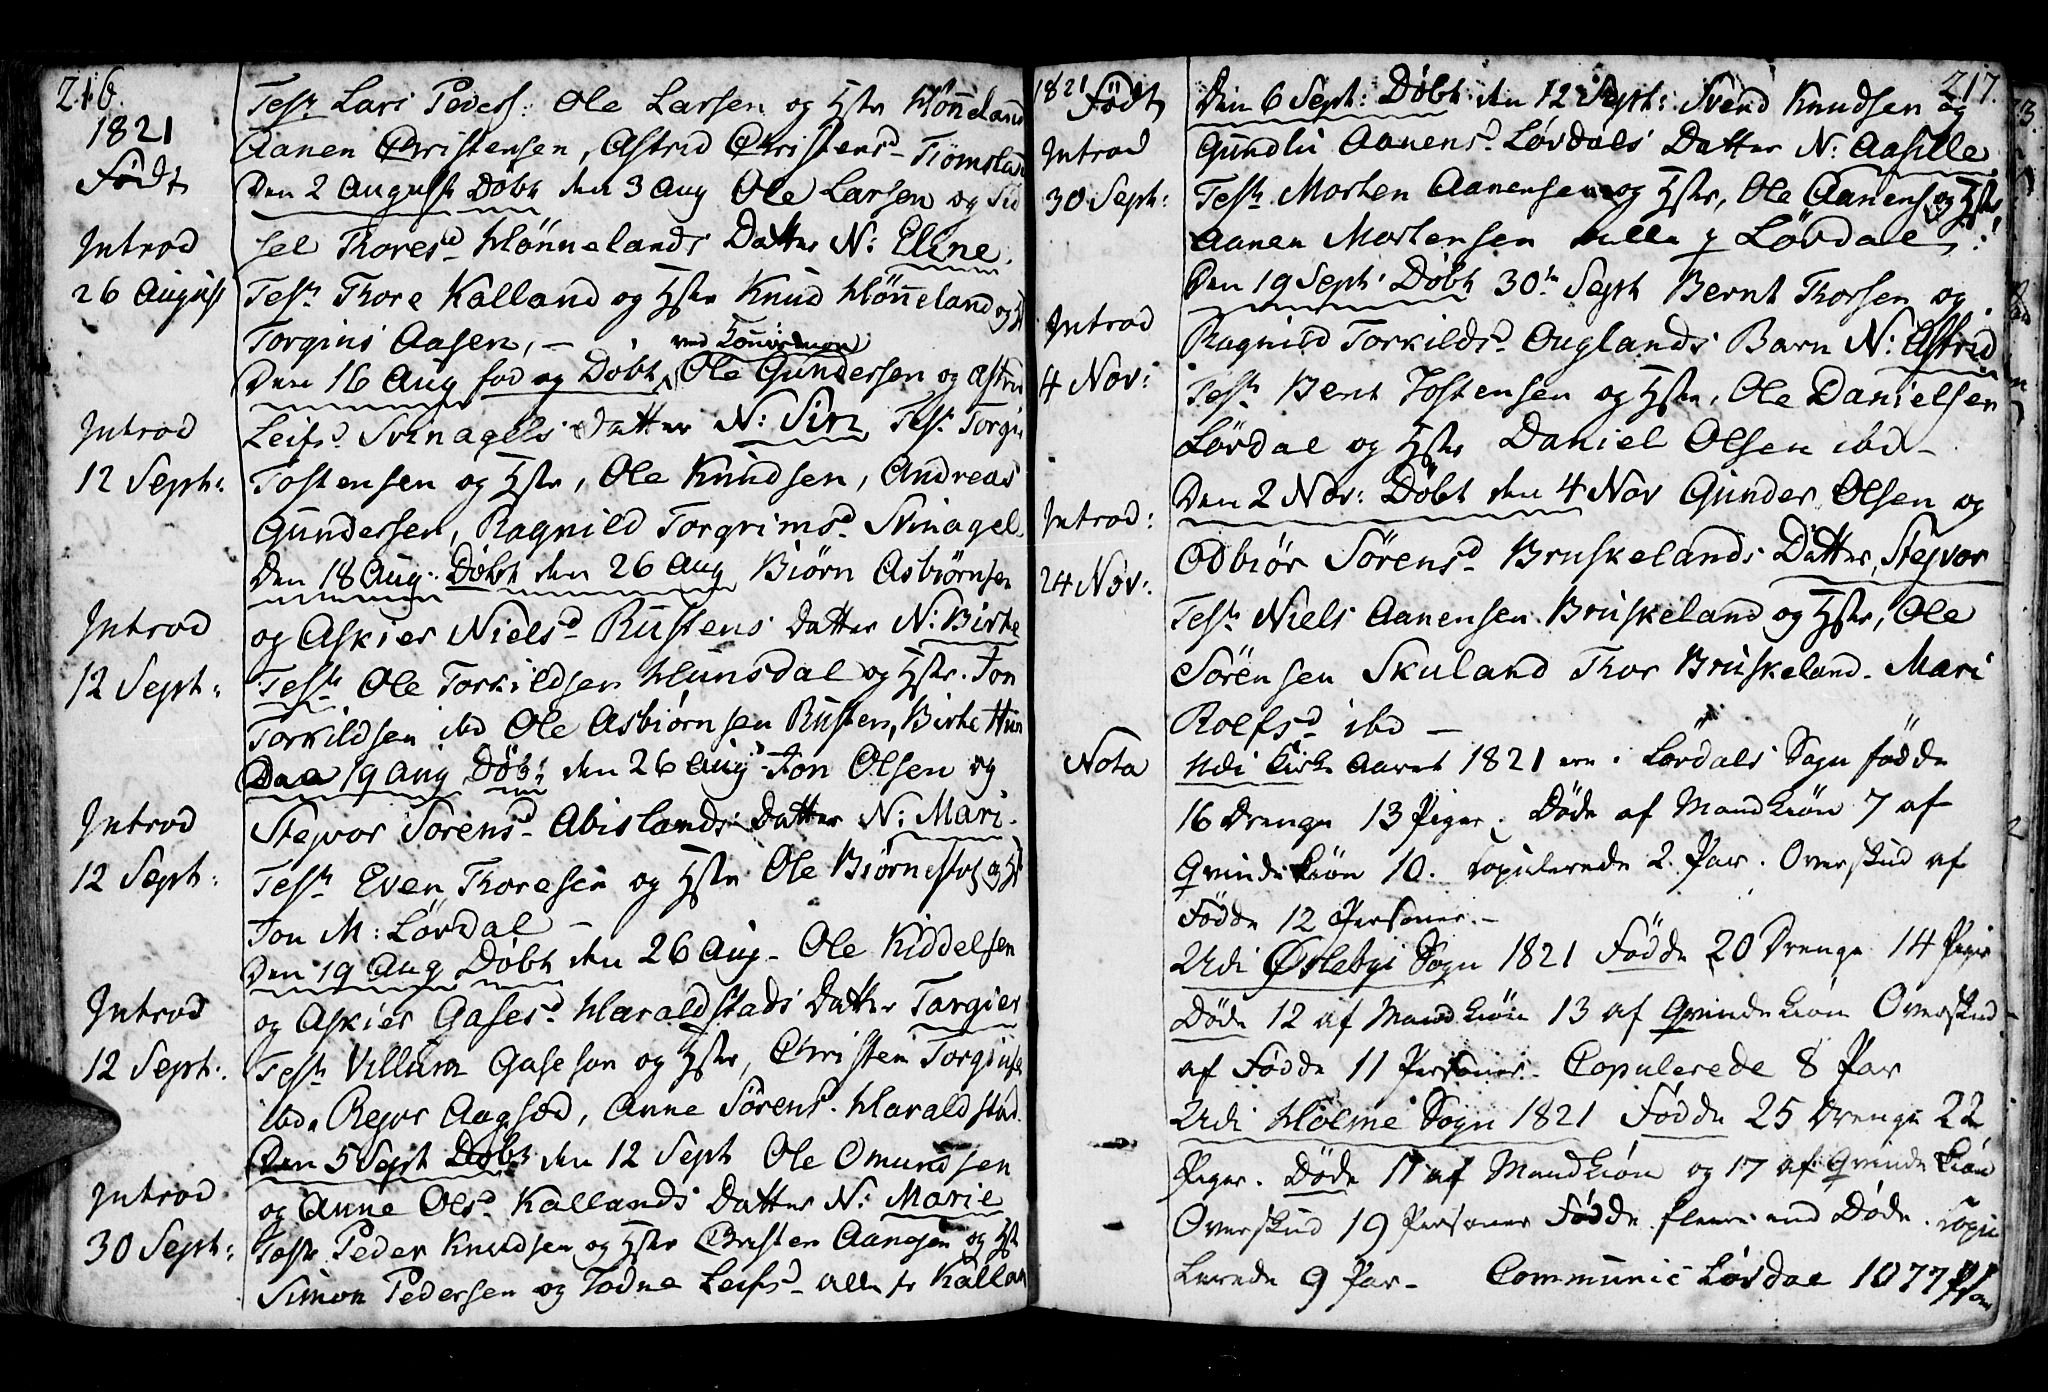 216.
1821
Födt
Tests Lars Peders: Ole Larsen og Hstr Hönneland
Aanen Christensen, Astrid Christensd Tiömsland
Den 2 August Döbt den 3 Aug Ole Larsen og Sid
Introd
sel Thoresd Hönnelands Datter N: Eline.
26 August
Testr Thore Kalland og Hstr Knud Hönneland og H
Torgius Aasen, —
ved Konirmon
Den 16 Aug fød og Döbt Ole Gundersen og Astri
Introd
Leifsd Svinagels Datter N: Siri Test Torgiu
12 Septr:
Tostensen og Hstr, Ole Knudsen, Andreas
Gundersen, Ragnild Torgrimsd Svinagel
Den 18 Aug: Döbt den 26 Aug Biörn Asbiörnsen
Introd
og Askier Nielsd Rustens Datter N: Birte
12 Septr:
Testr Ole Torkildsen Hunsdal og Hstr. Jon
Torkildsen ibd Ole Asbiörnsen Rusten, Birte Hun
Den 19 Aug Döbt den 26 Aug Jon Olsen og
Introd
Stejvor Sörensd Abislands Datter N: Mari.
12 Septr:
Testr Even Thoresen og Hstr Ole Biörnestøl og H
Jon M: Lövdal —
Den 19 Aug Döbt den 26 Aug - Ole Kiddelsen
Introd
og Askier Gasesd Haraldstads Datter Targier
12 Septr:
Testr Villum Gaseson og Hstr, Christen Torgius
ibd. Rejer Aagsæd, Anne Sörensd. Haraldstad.
Den 5 Sept Döbt den 12 Sept Ole Omundsen
Introd
og Anne Olsd Kallands Datter N: Marie
30 Septr:
Testr Peder Knudsen og Hstr Christen Aanesen og Hst
Simon Pedersen og Todne Leifsd alle fr Kallan
217.
1821 Födt
Den 6 Sept: Döbt den 12 Sept: Svend Knudsen og
Introd
Gunlu Aanensd Lövdals Datter N: Aasille
30 Septr:
Testr Morten Aanensen og Hstr, Ole Aanens og Hstr
Aanen Mortensen alle fr Lövdal
Den 19 Sept: Döbt 30te Sept Bernt Thorsen og
Introd
Ragnild Torkildsd Ouglands Barn N: Astrid
4 Nov:
Testr Bent Jostensen og Hstr, Ole Danielsen
Lövdal og Hstr Daniel Olsen ibd -
Den 2 Nov: Döbt den 4 Nov Gunder Olsen og
Introd:
Odbiör Sörensd Bruskelands Datter, Stejvor
24 Nov:
Testr Niels Aanensen Bruskeland og Hstr, Ole
Sörensen Skuland Thor Bruskeland. Mari
Rolfsd ibd —
Nota
Udi Kirke Aaret 1821 ere i Lövdals Sogn födde
16 Drenge 13 Piger. Döde af Mandkiön 7 af
Qvindekiön 10. Copulerede 2 Par. Overskud af
Födde 12 Personer. -
Udi Øslebye Sogn 1821 Födde 20 Drenge 14 Piger
Döde 12 af Mandkiön 13 af Qvindekiön Overskud
af Födde 11 Personer. Copulerede 8 Par
Udi Holme Sogn 1821 Födde 25 Drenge 22
Piger. Döde 11 af Mandkiön og 17 af Qvindekiön
Overskud 19 Personer Födde fleere end Döde. Copu
lerede 9 Par - Communic Lövdal 1077 Pson